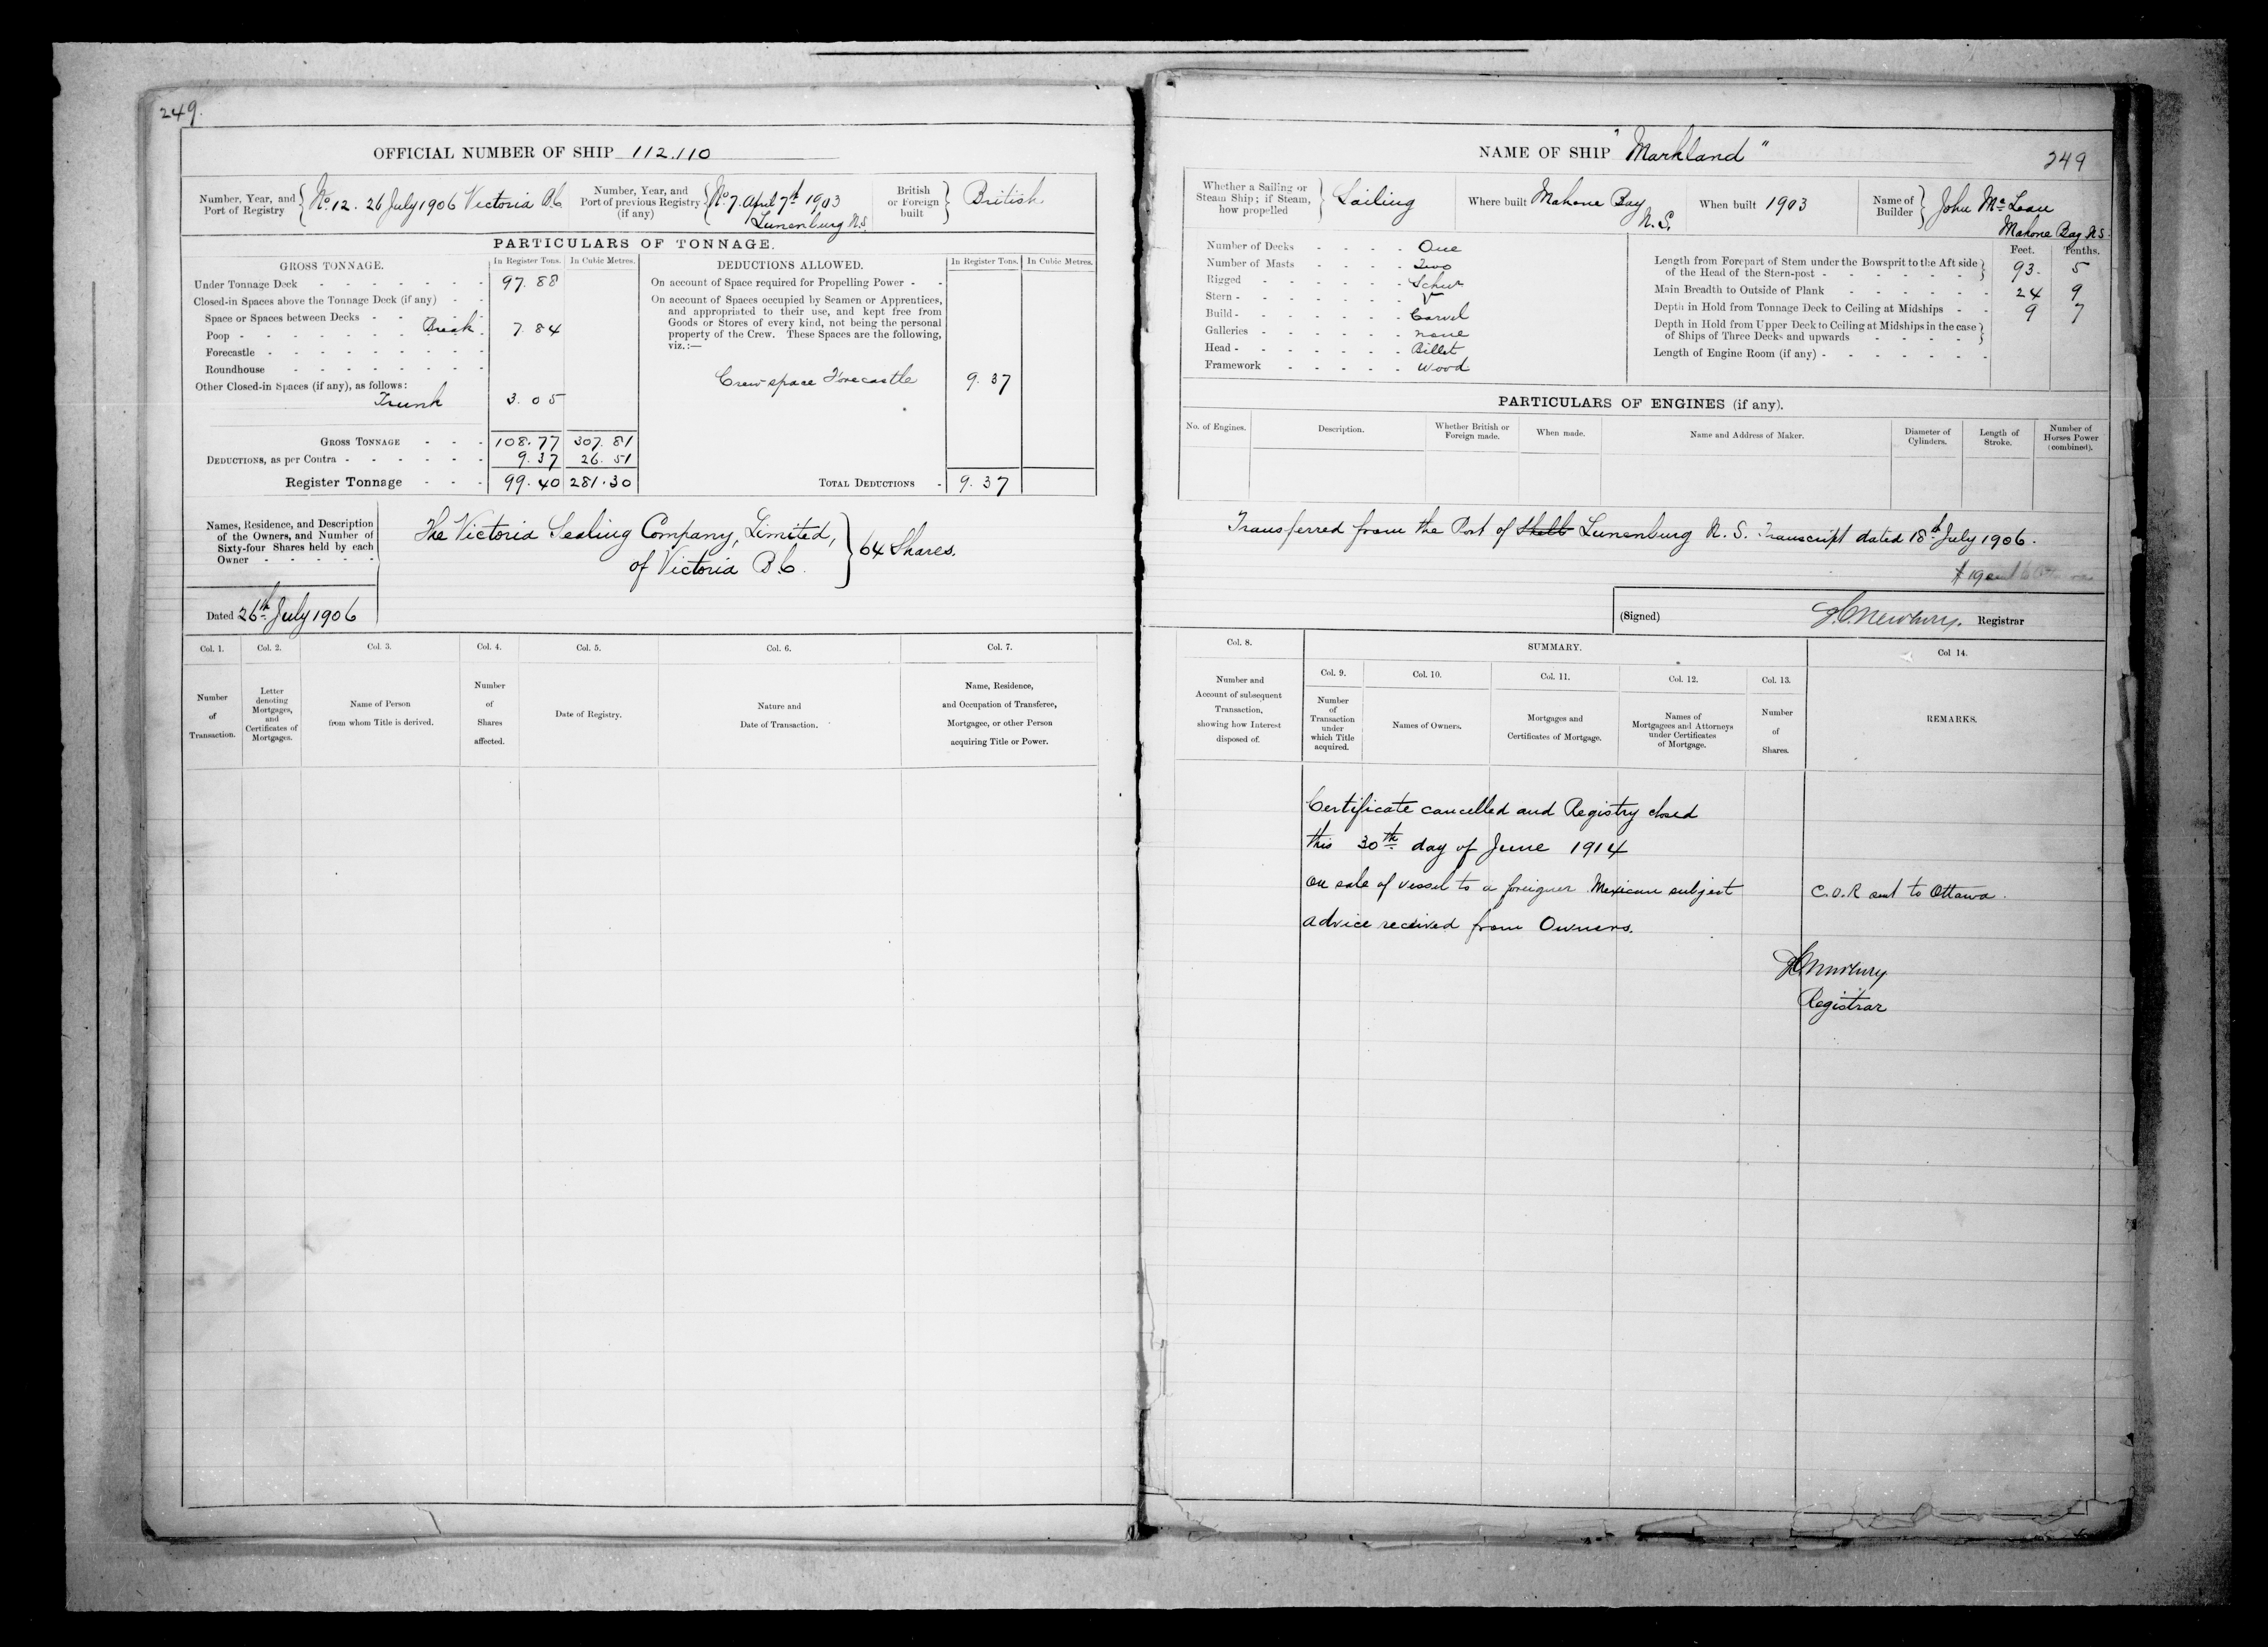 249.
OFFICIAL NUMBER OF SHIP 112.110
Number, Year, and Port of Registry No 12. 26 July 1906 Victoria B.C
Number, Year, and Port of previous Registry (if any) No 7. April 7th 1903 Lunenburg N.S.
British or Foreign built British
PARTICULARS OF TONNAGE.
GROSS TONNAGE. In Register Tons. In Cubic Metres.
Under Tonnage Deck 97.88
Closed-in Spaces above the Tonnage Deck (if any)
Space or Spaces between Decks
Poop Break 7.84
Forecastle
Roundhouse
Other Closed-in Spaces (if any), as follows:
Trunk 3.05
GROSS TONNAGE 108.77 307.81
DEDUCTIONS, as per Contra 9.37 26.51
Register Tonnage 99.40 281.30
DEDUCTIONS ALLOWED. In Register Tons. In Cubic Metres.
On account of Space required for Propelling Power
On account of Spaces occupied by Seamen or Apprentices,
and appropriated to their use, and kept free from
Goods or Stores of every kind, not being the personal
property of the Crew. These Spaces are the following,
viz.:—
Crew space Forecastle 9.37
TOTAL DEDUCTIONS 9.37
Names, Residence, and Description
of the Owners, and Number of
Sixty-four Shares held by each
Owner
The Victoria Sealing Company, Limited,
of Victoria B.C.
64 Shares.
Dated 26th July 1906
Col. 1. Col. 2. Col. 3. Col. 4. Col. 5. Col. 6. Col. 7.
Number of Transaction.
Letter denoting Mortgages, and Certificates of Mortgages.
Name of Person from whom Title is derived.
Number of Shares affected.
Date of Registry.
Nature and Date of Transaction.
Name, Residence, and Occupation of Transferee, Mortgagee, or other Person acquiring Title or Power.
NAME OF SHIP "Markland"
249
Whether a Sailing or Steam Ship; if Steam, how propelled Sailing
Where built Mahone Bay N.S.
When built 1903
Name of Builder John McLean Mahone Bay N.S.
Number of Decks One
Number of Masts Two
Rigged Schur
Stern
Build Carvel
Galleries none
Head Billet
Framework Wood
Feet. Tenths.
Length from Forepart of Stem under the Bowsprit to the Aft side of the Head of the Stern-post 93. 5
Main Breadth to Outside of Plank 24 9
Depth in Hold from Tonnage Deck to Ceiling at Midships 9 7
Depth in Hold from Upper Deck to Ceiling at Midships in the case of Ships of Three Decks and upwards
Length of Engine Room (if any)
PARTICULARS OF ENGINES (if any).
No. of Engines. Description. Whether British or Foreign made. When made. Name and Address of Maker. Diameter of Cylinders. Length of Stroke. Number of Horses Power (combined).
Transferred from the Port of Lunenburg N.S. Transcript dated 18th July 1906.
(Signed) Newbury. Registrar
Col. 8. SUMMARY. Col 14.
Col. 9. Col. 10. Col. 11. Col. 12. Col. 13.
Number and Account of subsequent Transaction, showing how Interest disposed of.
Number of Transaction under which Title acquired.
Names of Owners.
Mortgages and Certificates of Mortgage.
Names of Mortgagees and Attorneys under Certificates of Mortgage.
Number of Shares.
REMARKS.
Certificate cancelled and Registry closed
this 30th day of June 1914
on sale of vessel to a foreigner Mexican subject
C.O.R sent to Ottawa.
advice received from Owners.
Newbury
Registrar